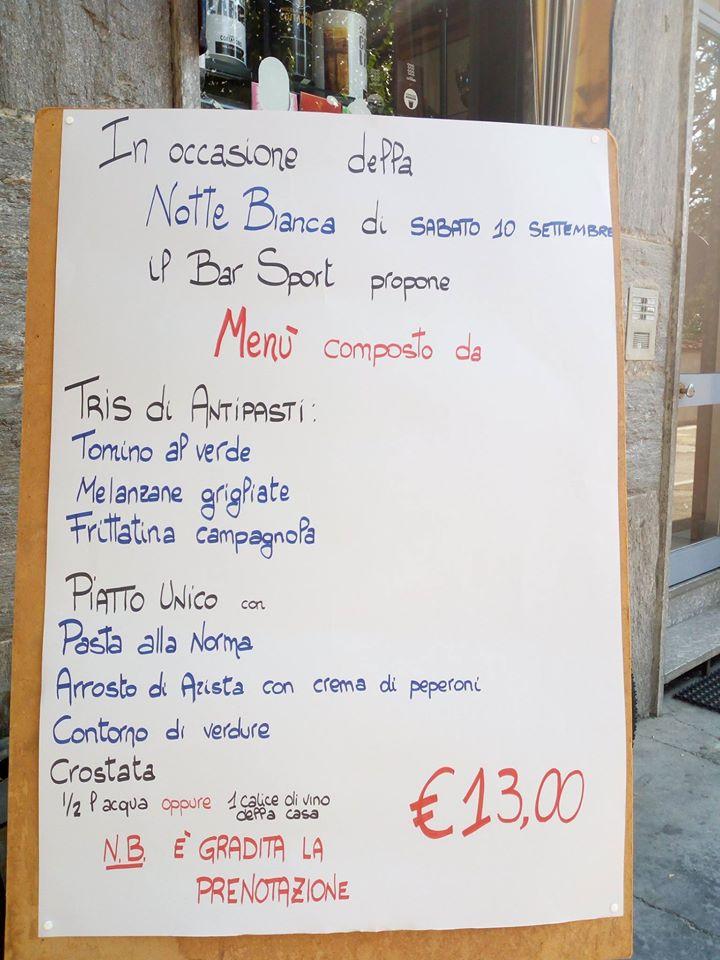 In occasione della
Notte Bianca di SABATO 10 SETTEMBRE
il Bar Sport propone
Menù composto da
TRIS di ANTIPASTI:
Tomino al verde
Melanzane grigliate
Frittatina campagnola
PIATTO UNICO con
Pasta alla Norma
Arrosto di Arista con crema di peperoni
Contorno di verdure
Crostata
1/2 l acqua oppure 1 calice di vino
della casa
€13,00
N.B. È GRADITA LA
PRENOTAZIONE